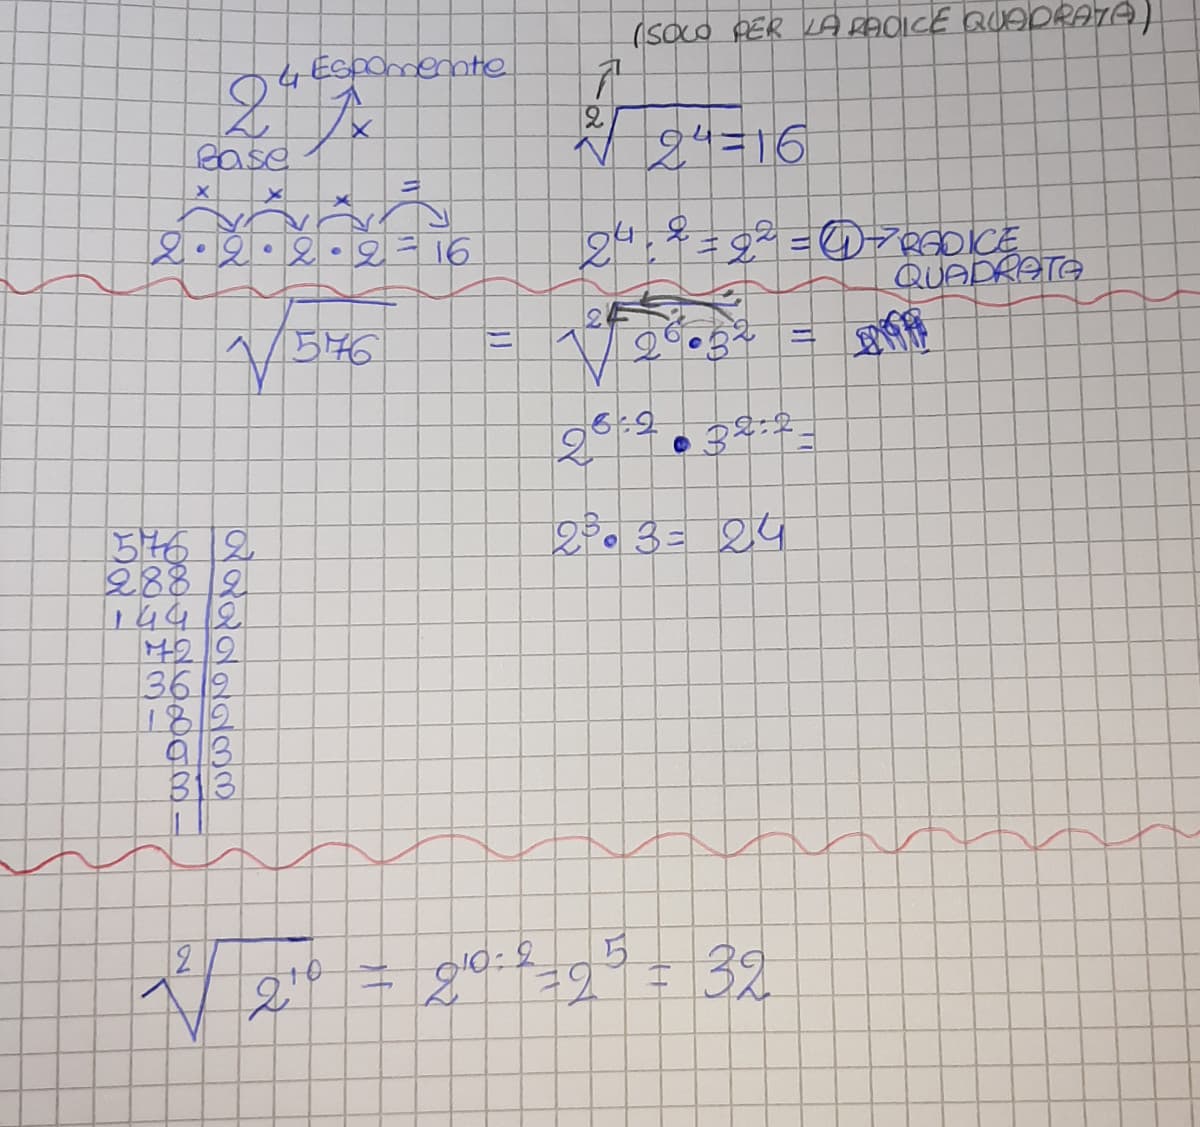 (SOLO PER LA RADICE QUADRATA)
2⁴ Esponente
x
Base
²√2⁴=16
x x x =
2·2·2·2=16
2⁴:²=2²=④→RADICE
QUADRATA
√576 = ²√2⁶·3² =
: :
2⁶:²·3²:²=
2³·3= 24
576|2
288|2
144|2
72|2
36|2
18|2
9|3
3|3
1|
²√2¹⁰ = 2¹⁰:²=2⁵= 32